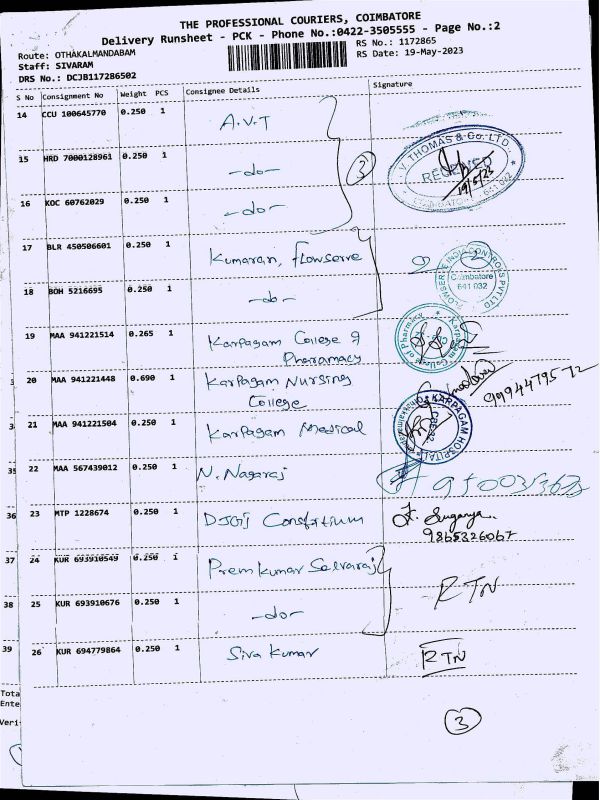 THE PROFESSIONAL COURIERS, COIMBATORE
Delivery Runsheet - PCK - Phone No.:0422-3505555 - Page No.:2
Route: OTHAKALMANDABAM
RS No.: 1172865
Staff: SIVARAM
RS Date: 19-May-2023
DRS No.: DCJB117286502
S No Consignment No Weight PCS Consignee Details Signature
14 CCU 100645770 0.250 1 A.V.T
15 HRD 7000128961 0.250 1 -do-
16 KOC 60762029 0.250 1 -do-
3
V. THOMAS & Co. LTD.
RECEIVED
19/5/23
COIMBATORE 641 032
17 BLR 450506601 0.250 1 Kumaran, Flowserve
18 BOH 5216695 0.250 1 -do-
2
FLOWSERVE INDIA CONTROLS PVT LTD
Coimbatore
641 032
19 MAA 941221514 0.265 1 Karpagam College of
Pharamacy
Karpagam College of Pharmacy
20 MAA 941221448 0.690 1 Karpagam Nursing
College
9994479572
21 MAA 941221504 0.250 1 Karpagam Medical
KARPAGAM HOSPITAL
CBE-32
35 22 MAA 567439012 0.250 1 N. Nagaraj
36 23 MTP 1228674 0.250 1 DJGIJ Consfortium
J. Suganya.
9865326067
37 24 KUR 693910549 0.250 1 Premkumar Selvaraj
38 25 KUR 693910676 0.250 1 -do-
RTN
39 26 KUR 694779864 0.250 1 Siva Kumar
RTN
Tota
Ente
Veri
3